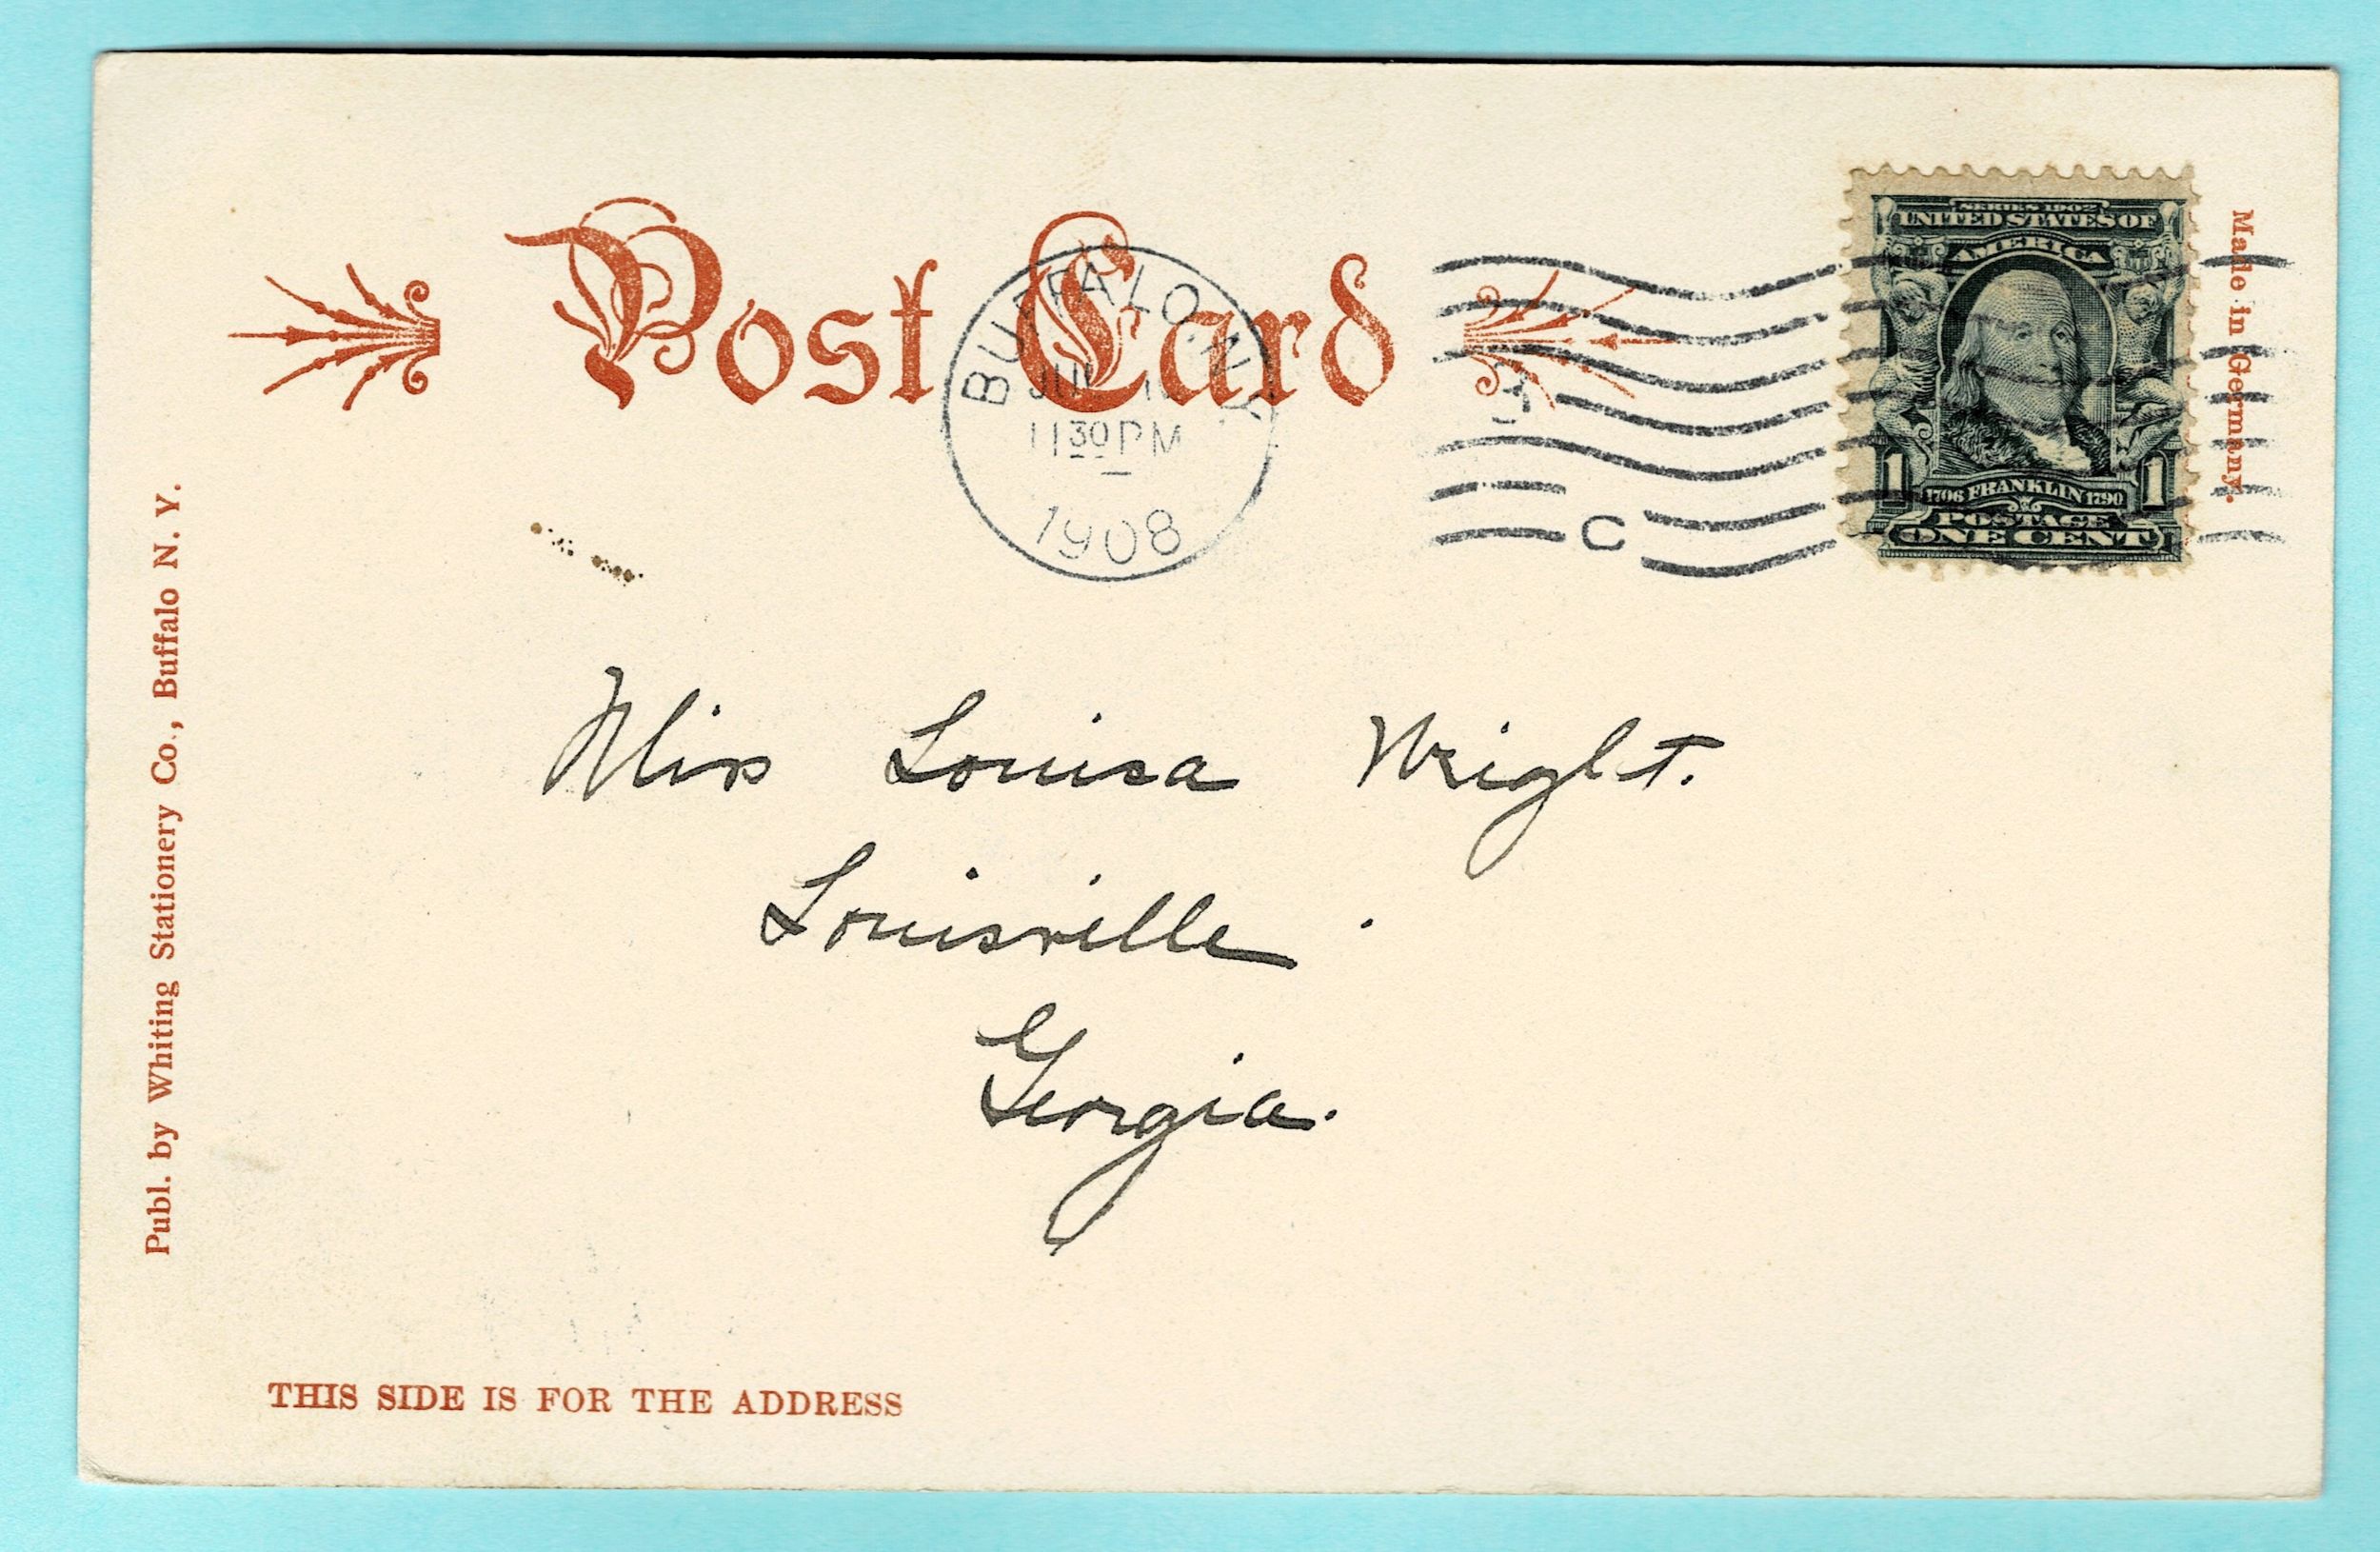 Post Card
BUFFALO. N.Y.
1130 PM
1908
C
SERIES 1902
UNITED STATES OF
AMERICA
1 1706 FRANKLIN 1790 1
POSTAGE
ONE CENT
Made in Germany.
Publ. by Whiting Stationery Co., Buffalo N. Y.
Miss Louisa Wright.
Louisville.
Georgia.
THIS SIDE IS FOR THE ADDRESS